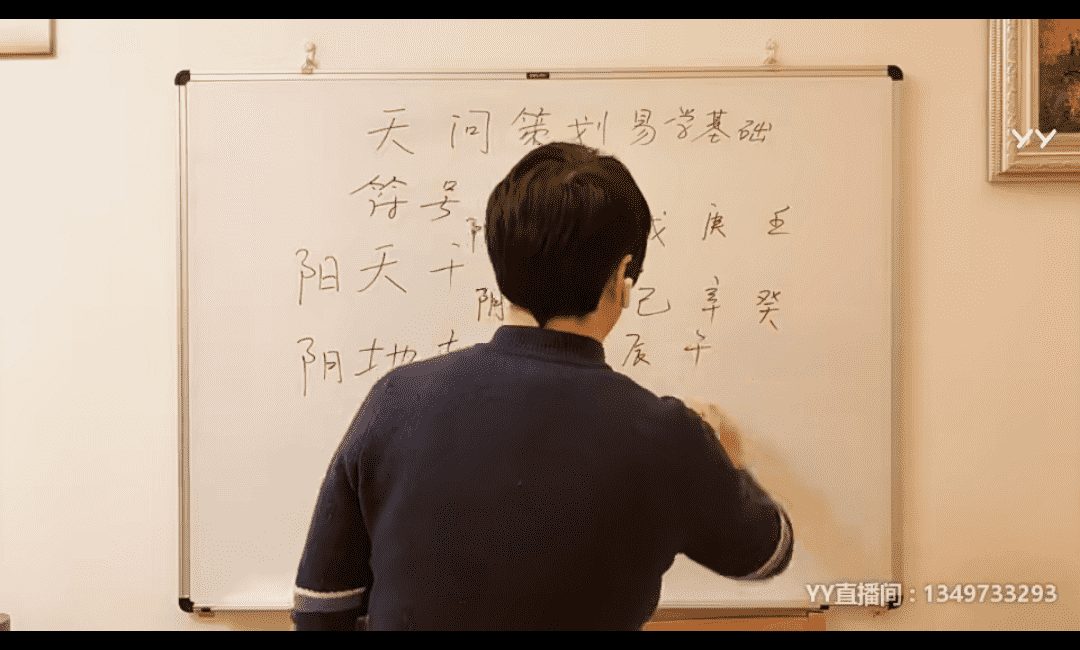 天问策划易学基础
YY
符号
戊 庚 壬
阳天干
阴 己 辛 癸
阴地 辰 午
YY直播间：1349733293